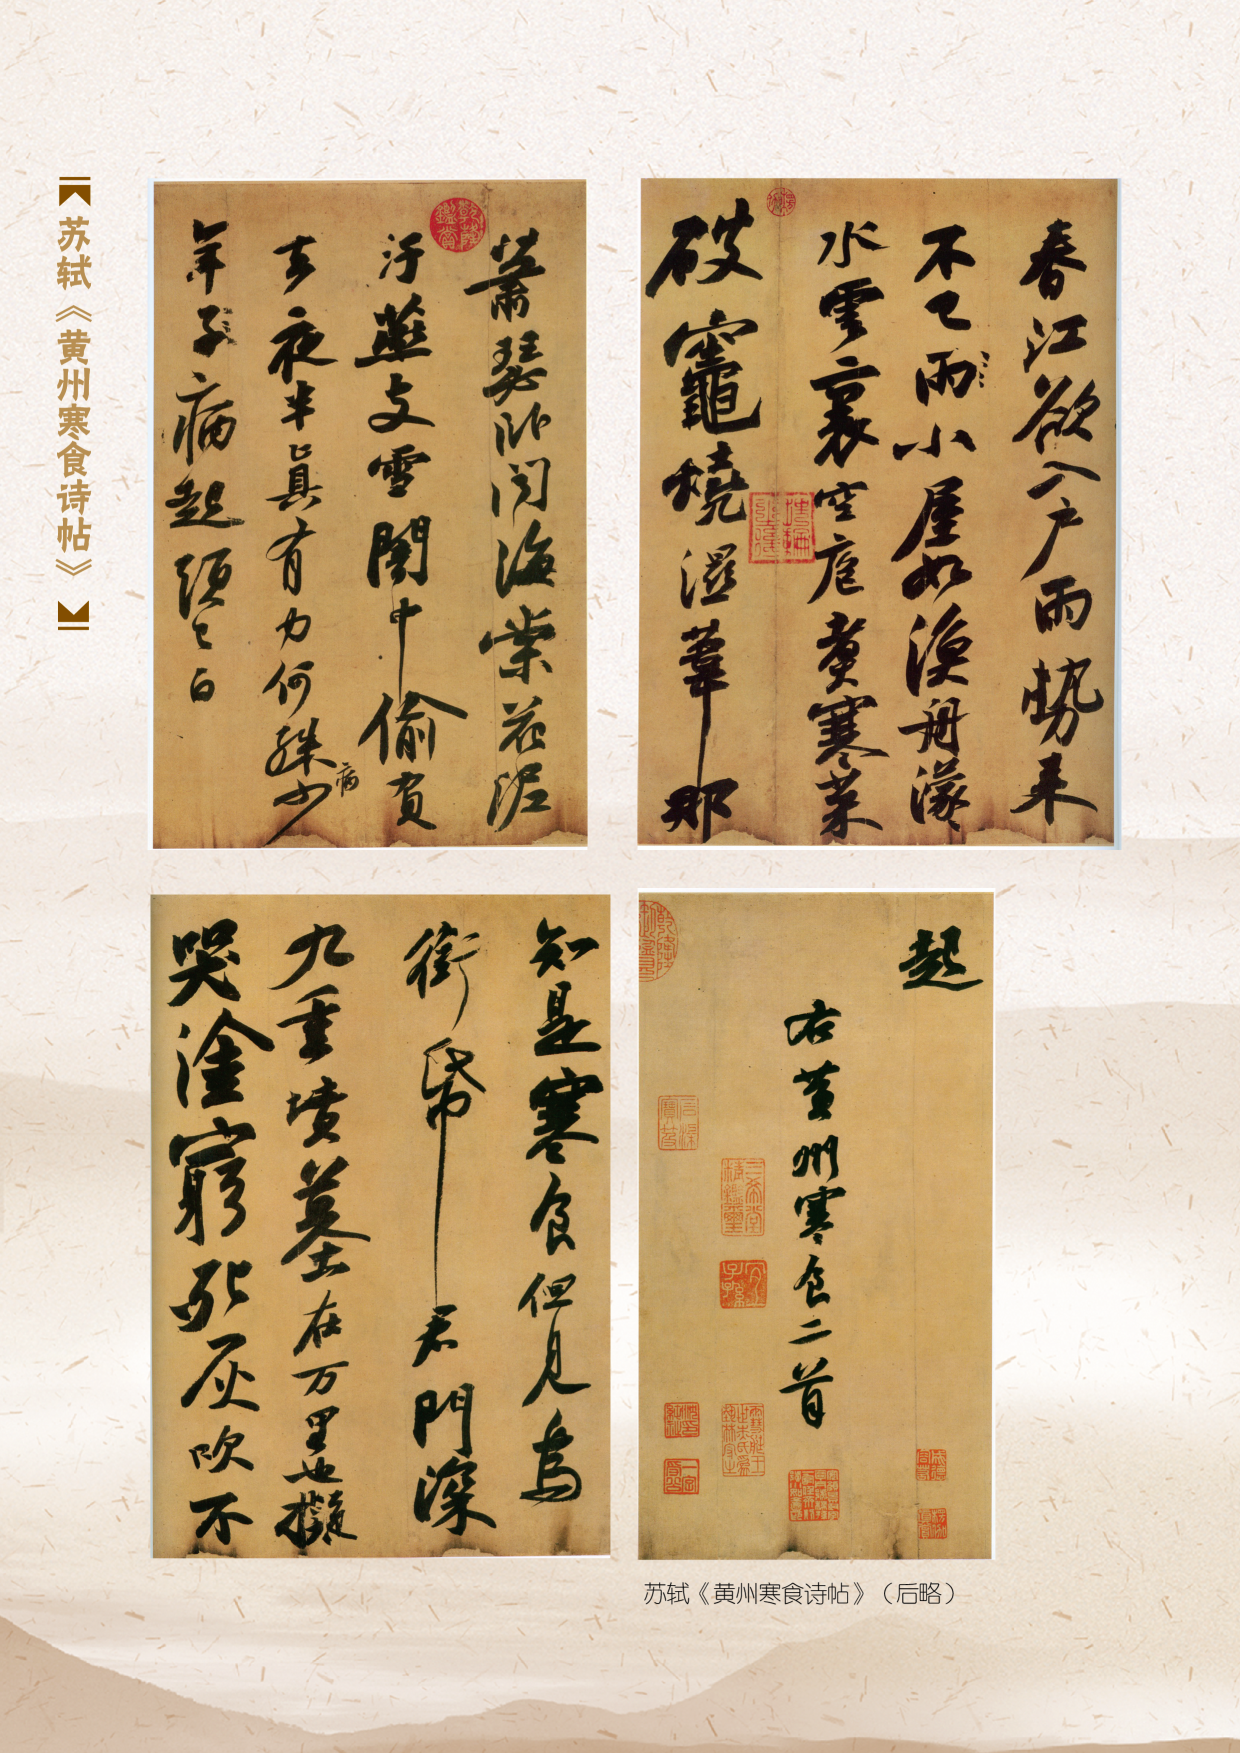 苏轼《黄州寒食诗帖》
春江欲入户雨势来
不已雨小屋如渔舟濛
水云裏空庖煮寒菜
破竈燒濕葦那
蕭瑟卧闻海棠花泥
汙燕支雪闇中偷負
去夜半真有力何殊少
病
年子病起頭已白
起
右黄州寒食二首
知是寒食但見烏
銜帋君門深
九重墳墓在万里也擬
哭塗窮死灰吹不
乾隆鑑賞
苏轼《黄州寒食诗帖》（后略）